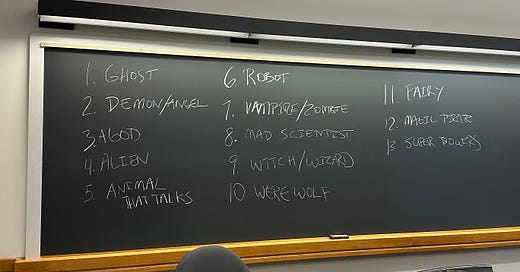 1. GHOST
2. DEMON/ANGEL
3. A GOD
4. ALIEN
5. ANIMAL
THAT TALKS
6. ROBOT
7. VAMPIRE/ZOMBIE
8. MAD SCIENTIST
9 WITCH/WIZARD
10 WEREWOLF
11. FAIRY
12. MAGIC PIRATE
13 SUPER POWERS